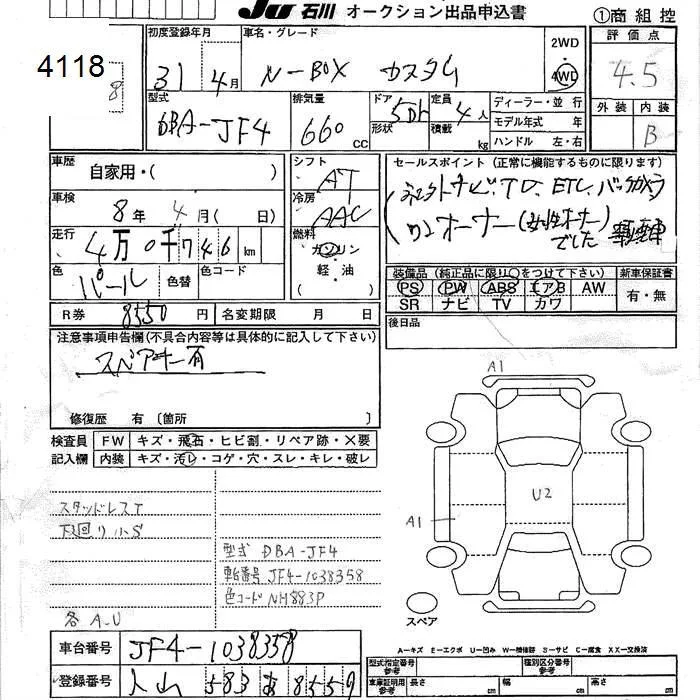 JU 石川 オークション出品申込書
① 商 組 控
4118
8
初度登録年月 31 4月
車名・グレード N-BOX カスタム
2WD
4WD
評価点
4.5
型式 DBA-JF4
排気量 660 CC
ドア 5Dr
形状
定員 4人
積載 kg
ディーラー・並行
モデル年式 年
ハンドル 左・右
外装 内装
B
車歴 自家用・( )
シフト AT
セールスポイント (正常に機能するものに限ります)
ETC、バックカメラ
ワンオーナー(女性オーナー)でした
車検 8年 4月( 日)
冷房 AAC
走行 4万0千746 km
燃料 ガソリン
軽・油
色 パール 色替 色コード
装備品(純正品に限り○をつけて下さい) 新車保証書
PS PW ABS エアB AW 有・無
SR ナビ TV カワ
R券 8550円 名変期限 月 日
後日品
注意事項申告欄(不具合内容等は具体的に記入して下さい)
スペアキー有
修復歴 有 〔箇所
検査員 FW キズ・飛石・ヒビ割・リペア跡・X要
記入欄 内装 キズ・汚レ・コゲ・穴・スレ・キレ・破レ
A1
U2
A1
スペア
スタッドレスT
下廻り小S
型式 DBA-JF4
車台番号 JF4-1038358
色コード NH883P
各A.U
A=キズ E=エクボ U=凹み W=補修跡 S=サビ C=腐食 XX=交換済
車台番号 JF4-1038358
型式指定番号 参考
種別区分番号 参考
登録番号 石川 583 あ 8559
車庫証明用 参考
長さ cm 幅 cm 高さ cm